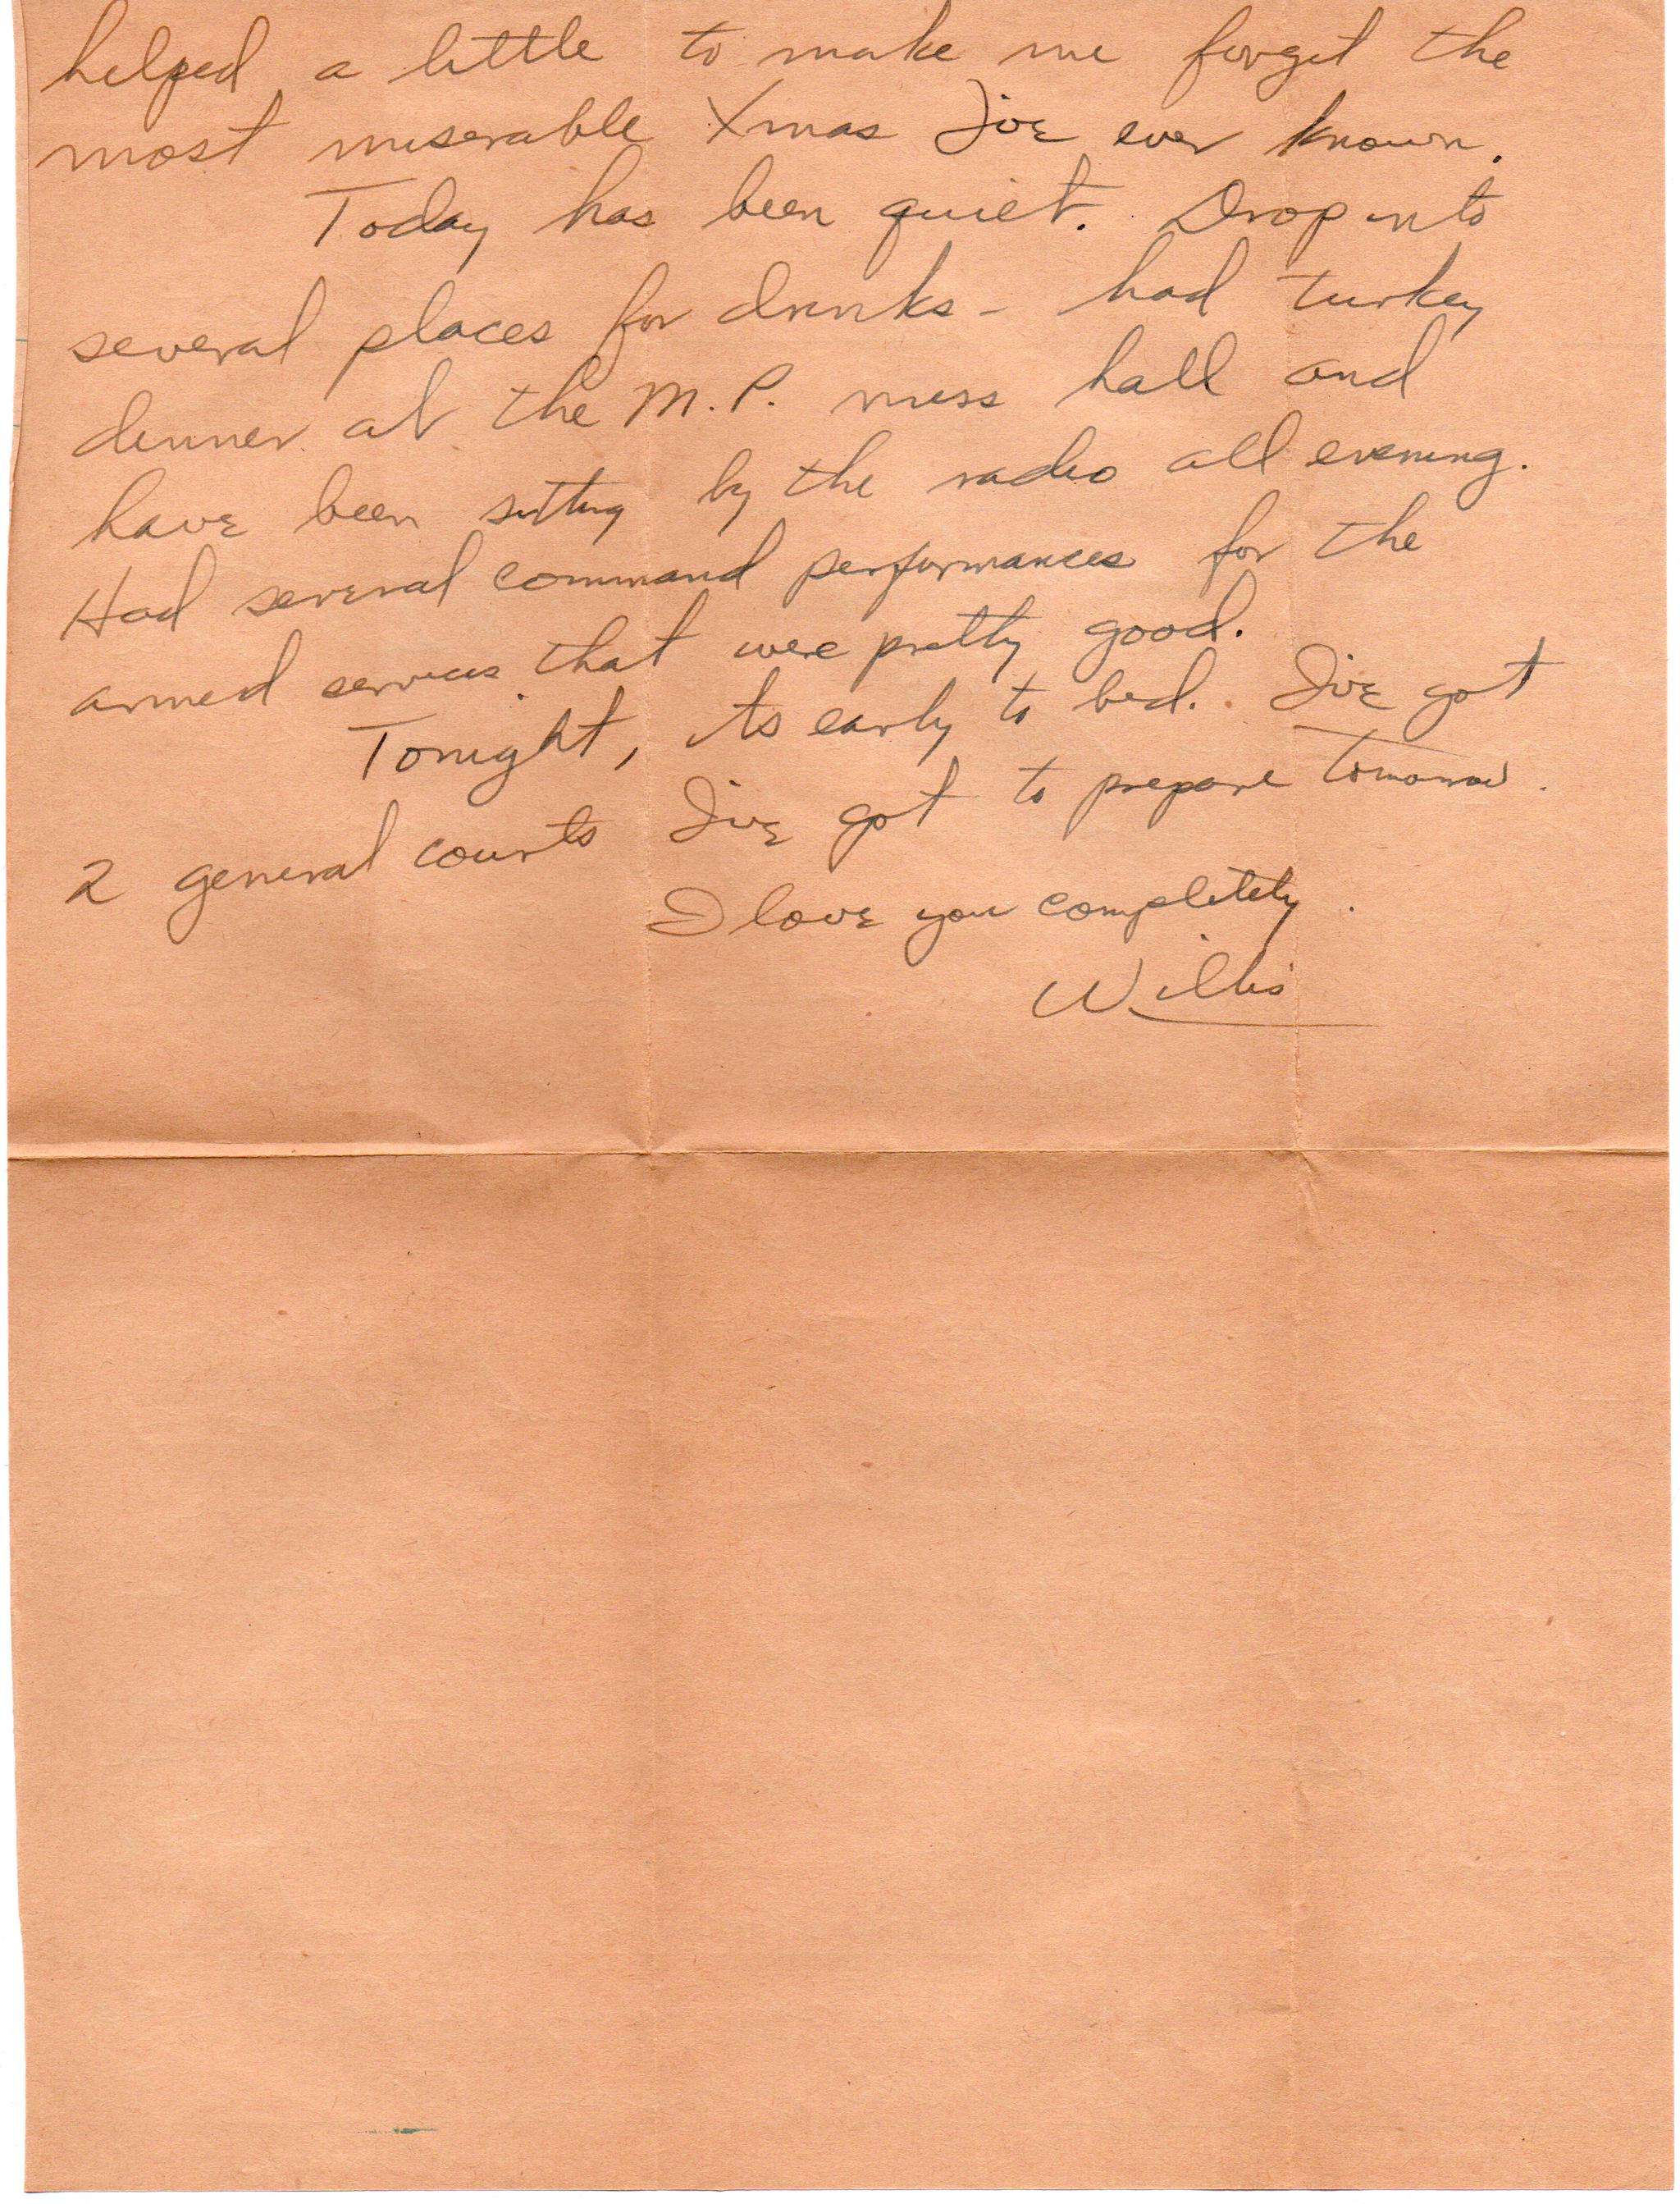 helped a little to make me forget the
most miserable Xmas I've ever known.
Today has been quiet. Drop into
several places for drinks - had turkey
dinner at the M.P. mess hall and
have been sitting by the radio all evening.
Had several command performances for the
armed services that were pretty good.
Tonight, its early to bed. I've got
2 general courts I've got to prepare tomorrow.
I love you completely.
Willis